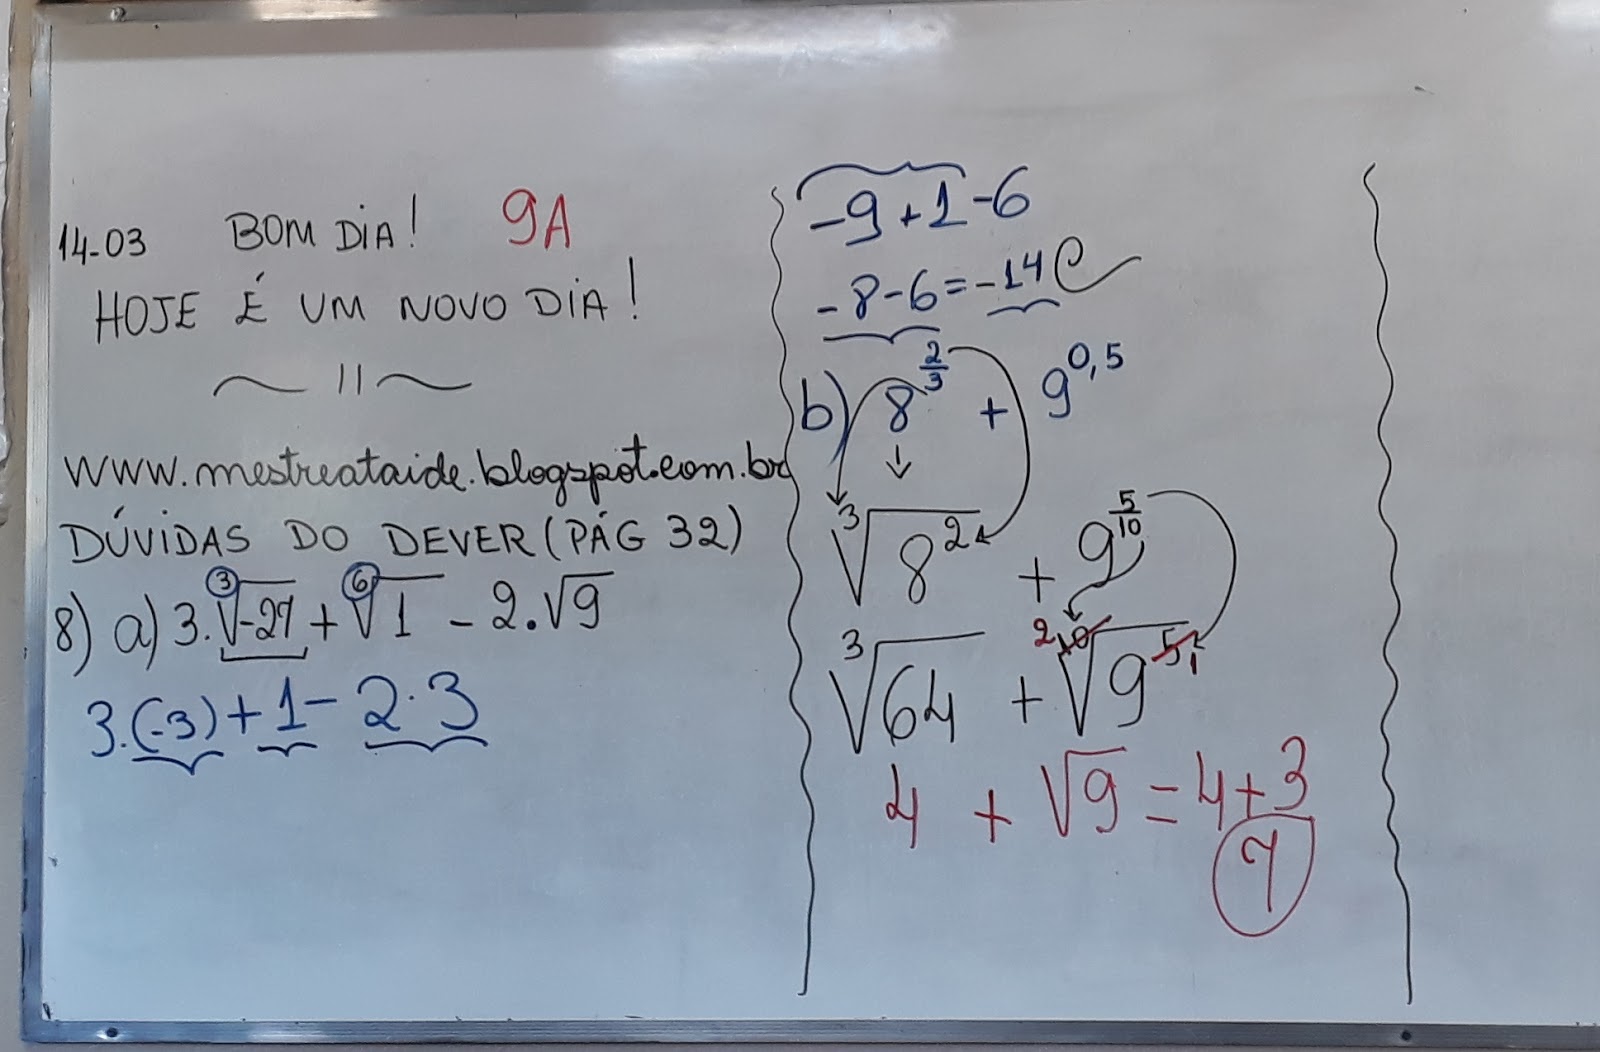 14-03 BOM DIA! 9A
HOJE É UM NOVO DIA!
~ 11 ~
www.mestreataide.blogspot.com.br
DÚVIDAS DO DEVER (PÁG 32)
8) a) 3.∛-27 + ⁶√1 - 2.√9
3.(-3) + 1 - 2.3
-9+1-6
-8-6=-14
b) 8^(2/3) + 9^0,5
∛8² + 9^(5/10)
∛64 + 2 ¹⁰√9⁵ 1
4 + √9 = 4+3
7